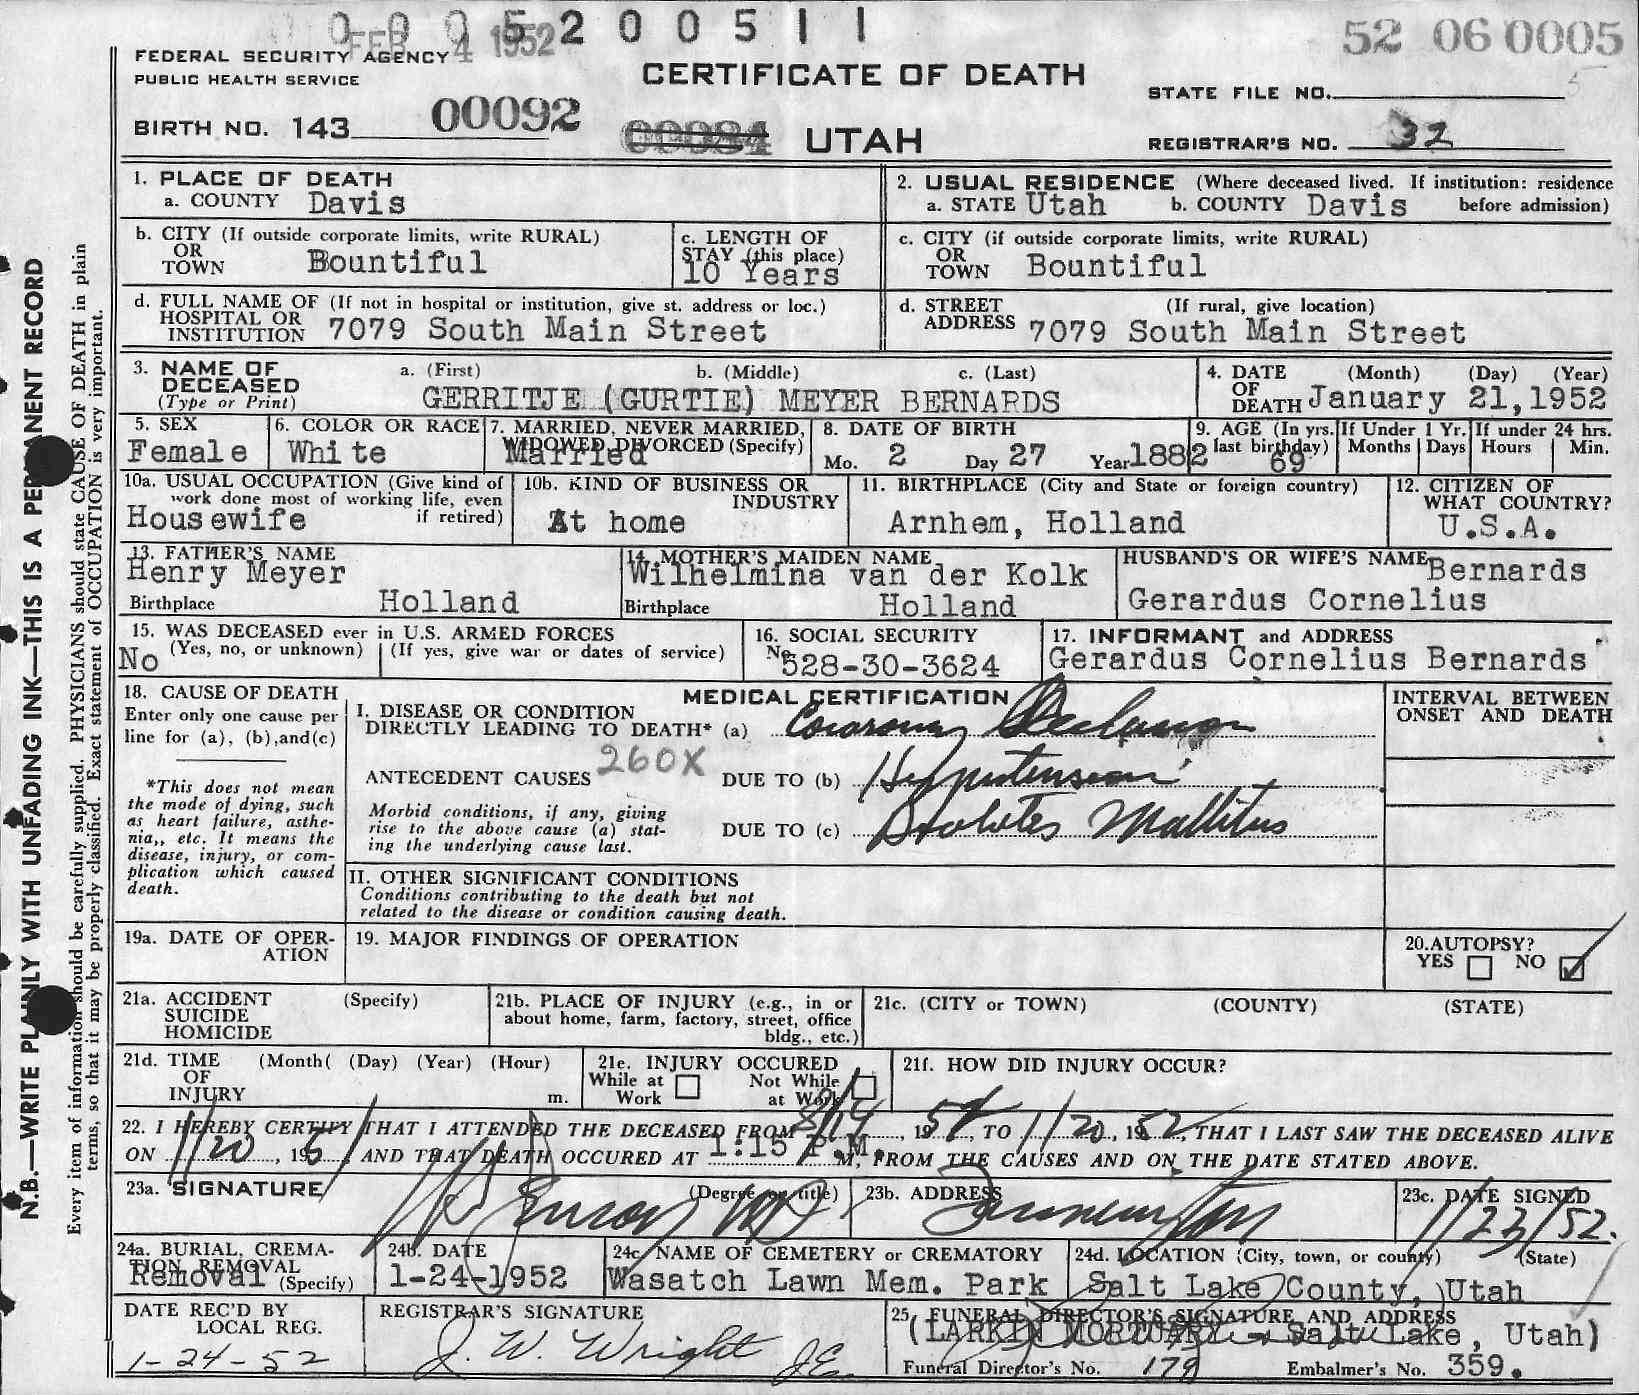 0005200511
FEB 4 1952
52 06 0005
5
FEDERAL SECURITY AGENCY
PUBLIC HEALTH SERVICE
CERTIFICATE OF DEATH
STATE FILE NO.
BIRTH NO. 143 00092
UTAH
REGISTRAR'S NO. 32
1. PLACE OF DEATH
a. COUNTY Davis
2. USUAL RESIDENCE (Where deceased lived. If institution: residence before admission)
a. STATE Utah b. COUNTY Davis
b. CITY (If outside corporate limits, write RURAL)
OR
TOWN Bountiful
c. LENGTH OF
STAY (this place)
10 Years
c. CITY (if outside corporate limits, write RURAL)
OR
TOWN Bountiful
d. FULL NAME OF (If not in hospital or institution, give st. address or loc.)
HOSPITAL OR
INSTITUTION 7079 South Main Street
d. STREET (If rural, give location)
ADDRESS 7079 South Main Street
3. NAME OF
DECEASED
(Type or Print)
a. (First) b. (Middle) c. (Last)
GERRITJE (GURTIE) MEYER BERNARDS
4. DATE (Month) (Day) (Year)
OF
DEATH January 21, 1952
5. SEX
Female
6. COLOR OR RACE
White
7. MARRIED, NEVER MARRIED,
WIDOWED DIVORCED (Specify)
Married
8. DATE OF BIRTH
Mo. 2 Day 27 Year 1882
9. AGE (In yrs.
last birthday)
69
If Under 1 Yr.
Months Days
If under 24 hrs.
Hours Min.
10a. USUAL OCCUPATION (Give kind of
work done most of working life, even
if retired)
Housewife
10b. KIND OF BUSINESS OR
INDUSTRY
At home
11. BIRTHPLACE (City and State or foreign country)
Arnhem, Holland
12. CITIZEN OF
WHAT COUNTRY?
U.S.A.
13. FATHER'S NAME
Henry Meyer
Birthplace Holland
14. MOTHER'S MAIDEN NAME
Wilhelmina van der Kolk
Birthplace Holland
HUSBAND'S OR WIFE'S NAME Bernards
Gerardus Cornelius
15. WAS DECEASED ever in U.S. ARMED FORCES
(Yes, no, or unknown) (If yes, give war or dates of service)
No
16. SOCIAL SECURITY
No. 528-30-3624
17. INFORMANT and ADDRESS
Gerardus Cornelius Bernards
18. CAUSE OF DEATH
Enter only one cause per
line for (a), (b), and (c)
*This does not mean
the mode of dying, such
as heart failure, asthe-
nia,, etc. It means the
disease, injury, or com-
plication which caused
death.
MEDICAL CERTIFICATION
I. DISEASE OR CONDITION
DIRECTLY LEADING TO DEATH* (a) Coronary Occlusion
ANTECEDENT CAUSES 260X DUE TO (b) Hypertension
Morbid conditions, if any, giving
rise to the above cause (a) stat-
ing the underlying cause last.
DUE TO (c) Diabetes Mallitus
INTERVAL BETWEEN
ONSET AND DEATH
II. OTHER SIGNIFICANT CONDITIONS
Conditions contributing to the death but not
related to the disease or condition causing death.
19a. DATE OF OPER-
ATION
19. MAJOR FINDINGS OF OPERATION
20. AUTOPSY?
YES NO
21a. ACCIDENT (Specify)
SUICIDE
HOMICIDE
21b. PLACE OF INJURY (e.g., in or
about home, farm, factory, street, office
bldg., etc.)
21c. (CITY or TOWN) (COUNTY) (STATE)
21d. TIME (Month( (Day) (Year) (Hour)
OF
INJURY m.
21e. INJURY OCCURED
While at Work Not While at Work
21f. HOW DID INJURY OCCUR?
22. I HEREBY CERTIFY THAT I ATTENDED THE DECEASED FROM , 19 , TO 1/20, 1952, THAT I LAST SAW THE DECEASED ALIVE
ON 1/20, 1951 AND THAT DEATH OCCURED AT 1:15 P.M. M, FROM THE CAUSES AND ON THE DATE STATED ABOVE.
23a. SIGNATURE (Degree or title)
23b. ADDRESS
Farmington
23c. DATE SIGNED
1/23/52.
24a. BURIAL, CREMA-
TION REMOVAL
Removal (Specify)
24b. DATE
1-24-1952
24c. NAME OF CEMETERY or CREMATORY
Wasatch Lawn Mem. Park
24d. LOCATION (City, town, or county) (State)
Salt Lake County, Utah
DATE REC'D BY
LOCAL REG.
1-24-52
REGISTRAR'S SIGNATURE
J. W. Wright
25. FUNERAL DIRECTOR'S SIGNATURE AND ADDRESS
(LARKIN MORTUARY - Salt Lake, Utah)
Funeral Director's No. 179 Embalmer's No. 359.
N.B.—WRITE PLAINLY WITH UNFADING INK—THIS IS A PERMANENT RECORD
Every item of information should be carefully supplied. PHYSICIANS should state CAUSE OF DEATH in plain
terms, so that it may be properly classified. Exact statement of OCCUPATION is very important.